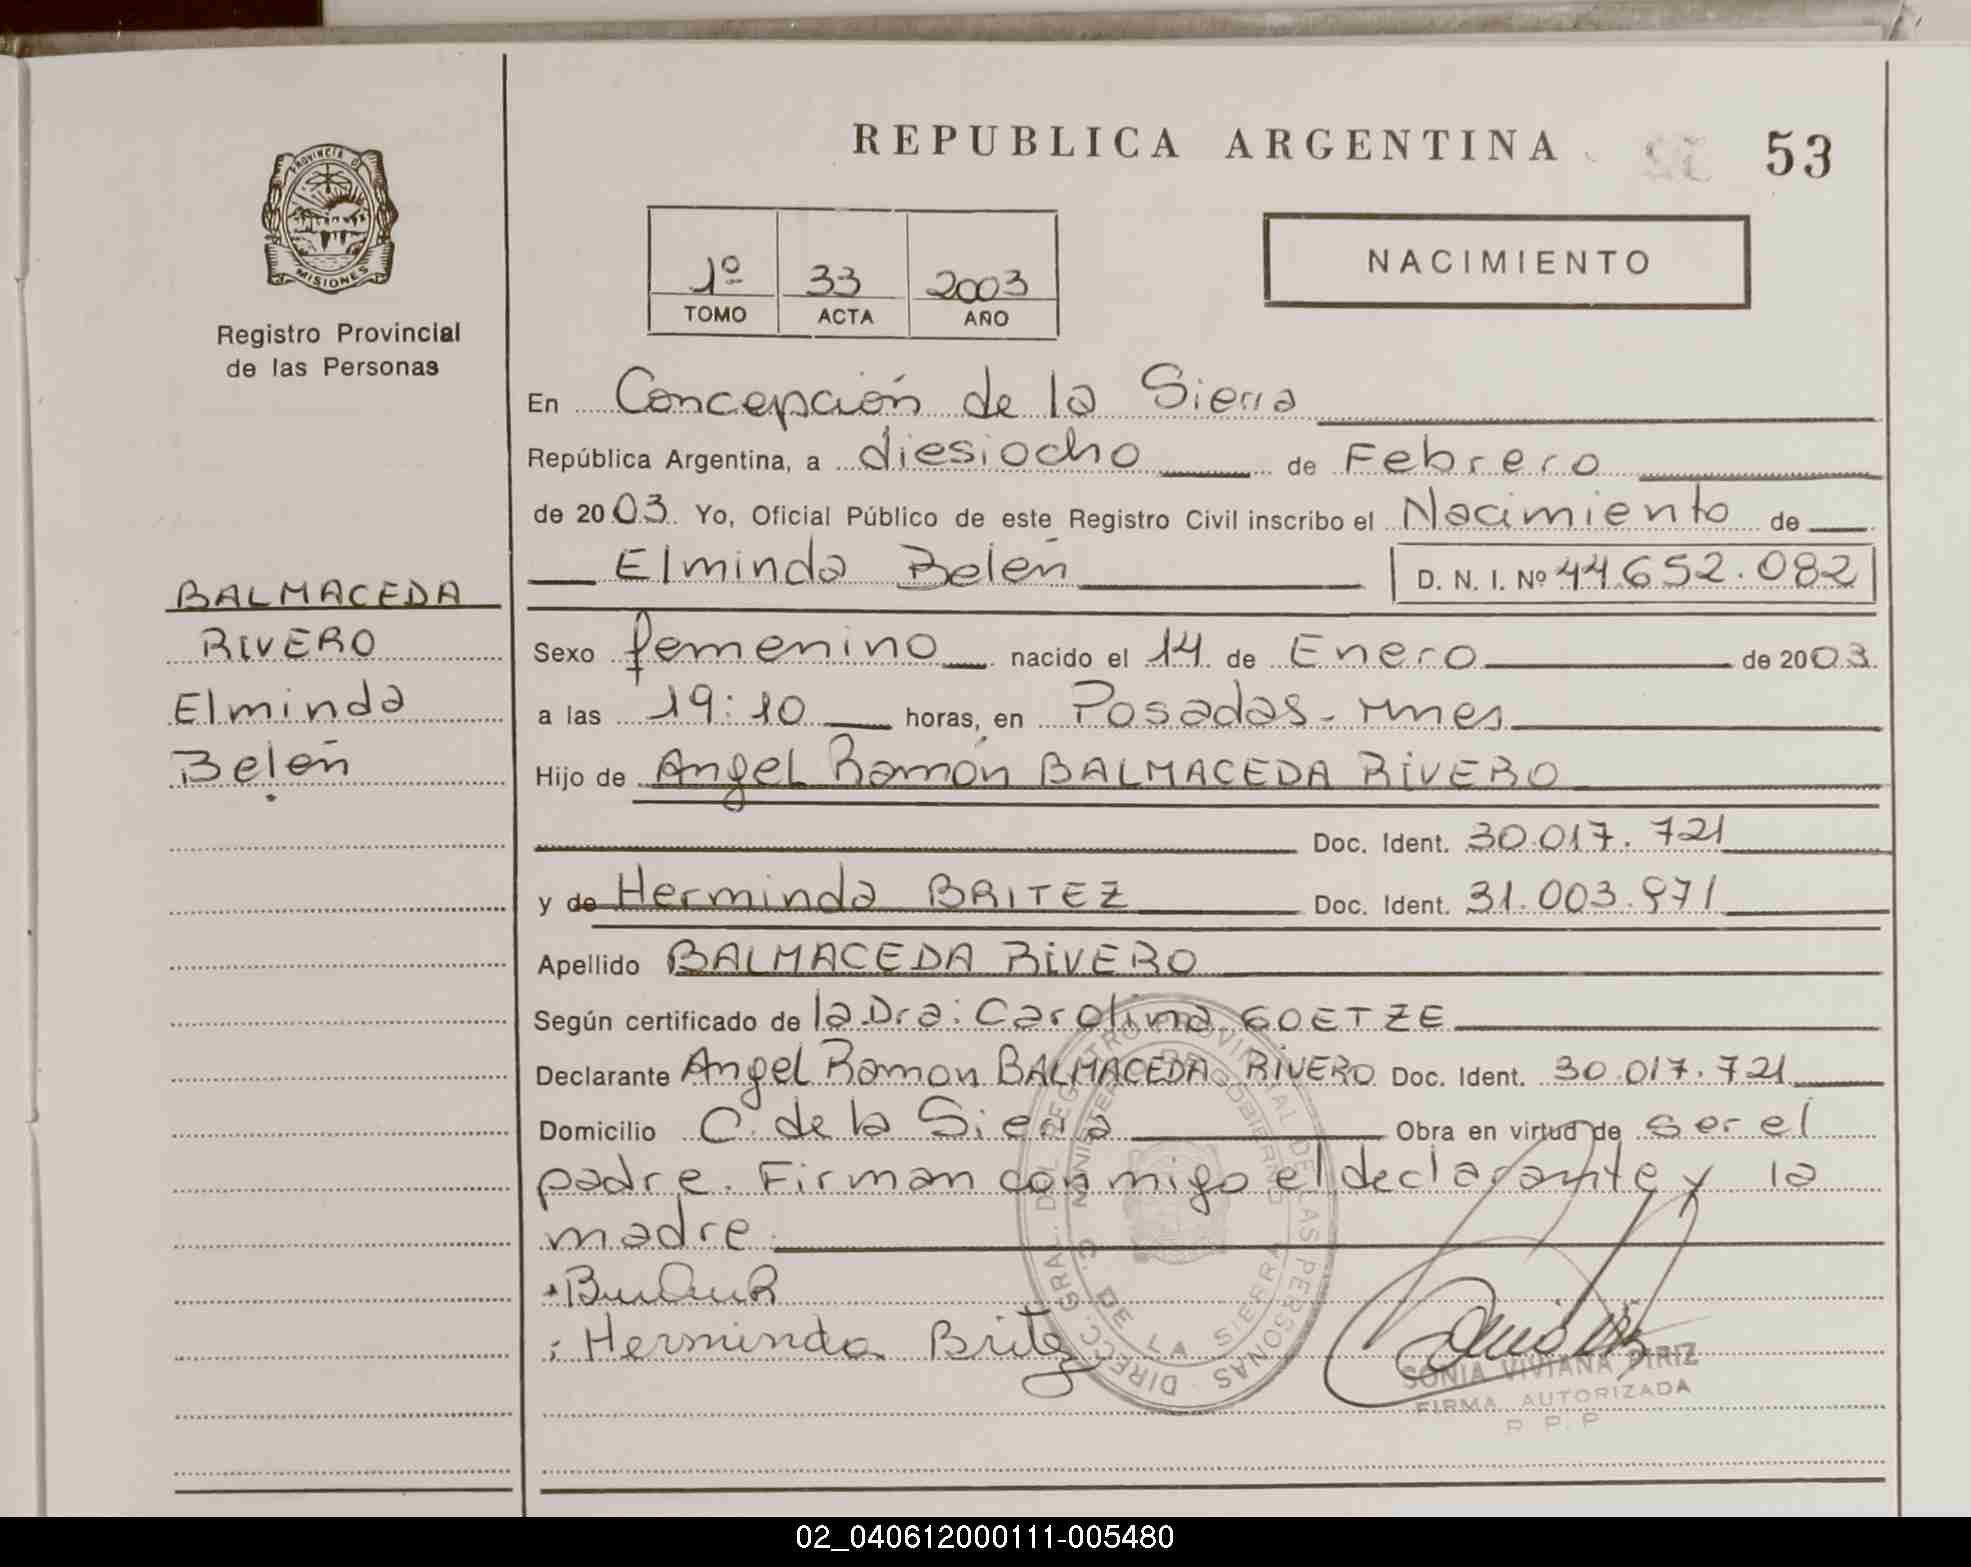 REPUBLICA ARGENTINA 53
PROVINCIA DE MISIONES
Registro Provincial
de las Personas
1º 33 2003
TOMO ACTA AÑO
NACIMIENTO
En Concepción de la Sierra
República Argentina, a diesiocho de Febrero
de 2003. Yo, Oficial Público de este Registro Civil inscribo el Nacimiento de
Elminda Belén D. N. I. Nº 44.652.082
BALMACEDA
RIVERO
Elminda
Belén
Sexo femenino nacido el 14 de Enero de 2003.
a las 19:10 horas, en Posadas - Mnes
Hijo de Angel Ramón BALMACEDA RIVERO
Doc. Ident. 30.017.721
y de Herminda BRITEZ Doc. Ident. 31.003.971
Apellido BALMACEDA RIVERO
Según certificado de la Dra: Carolina GOETZE
Declarante Angel Ramon BALMACEDA RIVERO Doc. Ident. 30.017.721
Domicilio C. de la Sierra Obra en virtud de ser el
padre. Firman conmigo el declarante y la
madre.
Herminda Britez
SONIA VIVIANA PIRIZ
FIRMA AUTORIZADA
R. P. P.
DIRECC. GRAL. DEL REGISTRO PROVINCIAL DE LAS PERSONAS
C. DE LA SIERRA
02_040612000111-005480